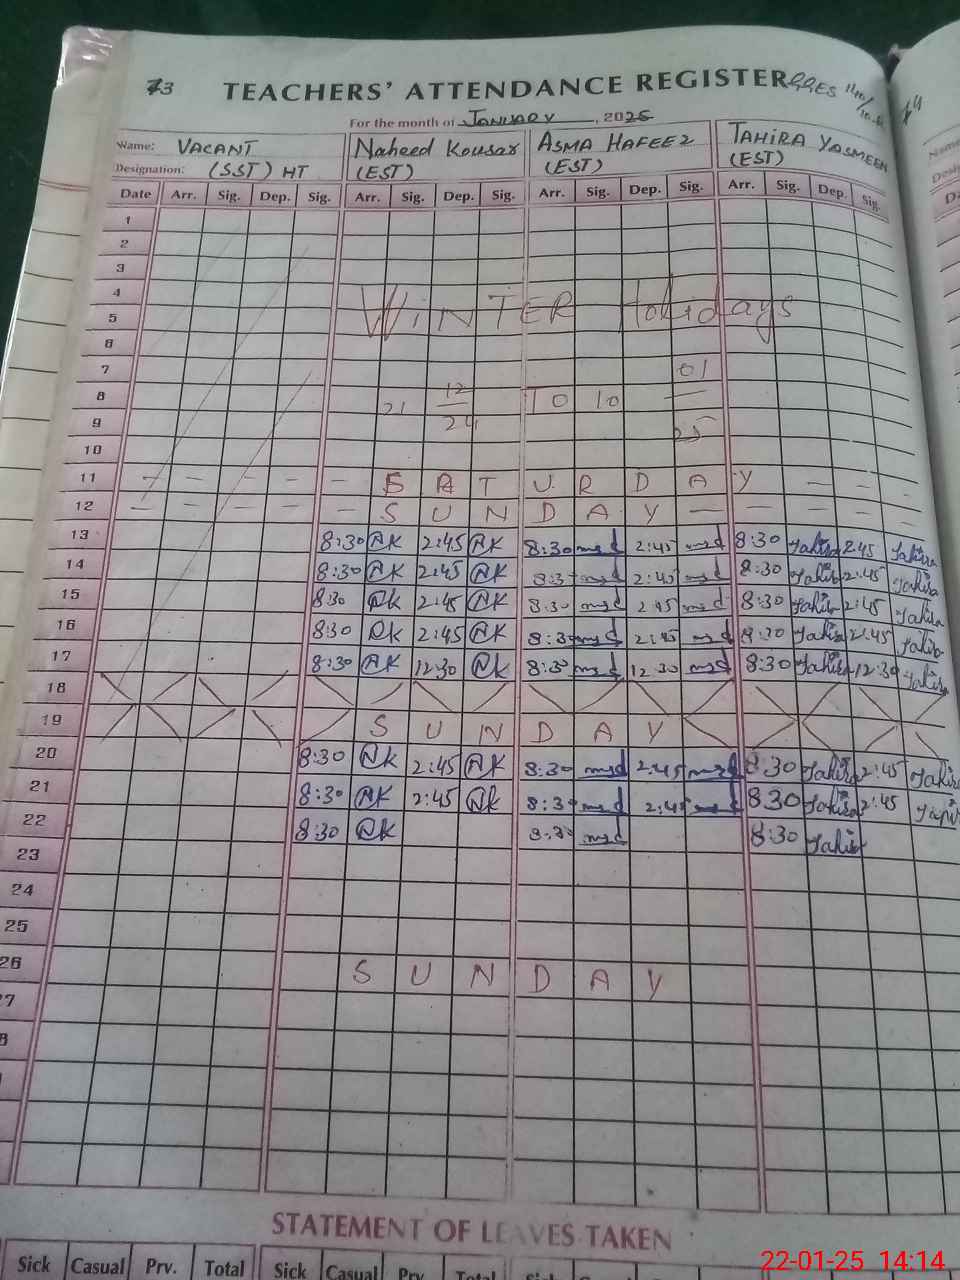 73 TEACHERS' ATTENDANCE REGISTER
For the month of JANUARY, 2025
Name: VACANT Naheed Kousar ASMA HAFEEZ TAHIRA YASMEEN
Designation: (SST) HT (EST) (EST) (EST)
Date Arr. Sig. Dep. Sig. Arr. Sig. Dep. Sig. Arr. Sig. Dep. Sig. Arr. Sig. Dep. Sig.
1
2
3
4
WINTER Holidays
5
6
7 01
8 21 12 TO 10
9 24 25
10
11 SATURDAY
12 SUNDAY
13 8:30 NK 2:45 NK 8:30 2:45 8:30 Tahira 2:45 Tahira
14 8:30 NK 2:45 NK 8:30 2:45 8:30 Tahira 2:45 Tahira
15 8:30 NK 2:45 NK 8:30 2:45 8:30 Tahira 2:45 Tahira
16 8:30 NK 2:45 NK 8:30 2:45 8:30 Tahira 2:45 Tahira
17 8:30 NK 12:30 NK 8:30 12:30 8:30 Tahira 12:30 Tahira
18
19 SUNDAY
20 8:30 NK 2:45 NK 8:30 2:45 8:30 Tahira 2:45 Tahira
21 8:30 NK 2:45 NK 8:30 2:45 8:30 Tahira 2:45
22 8:30 NK 8:30 8:30 Tahira
23
24
25
26 SUNDAY
STATEMENT OF LEAVES TAKEN
Sick Casual Prv. Total Sick Casual Prv. Total
22-01-25 14:14